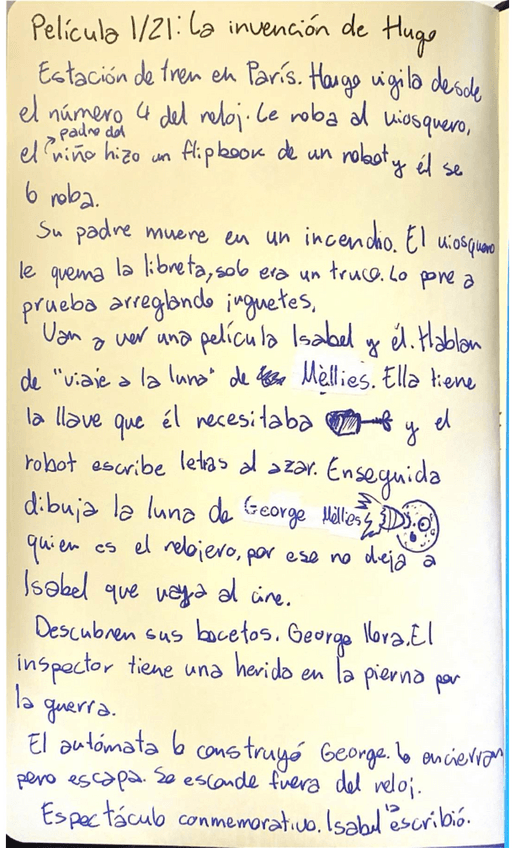 Película 1/21: La invención de Hugo
Estación de tren en París. Hugo vigila desde
el número 4 del reloj. Le roba al kiosquero,
padre del
el niño hizo un flipbook de un robot y él se
lo roba.
Su padre muere en un incendio. El kiosquero
le quema la libreta, solo era un truco. Lo pone a
prueba arreglando juguetes.
Van a ver una película Isabel y él. Hablan
de "viaje a la luna" de Mèllies. Ella tiene
la llave que él necesitaba y el
robot escribe letras al azar. Enseguida
dibuja la luna de George Mèllies
quien es el relojero, por eso no deja a
Isabel que vaya al cine.
Descubren sus bocetos. George llora. El
inspector tiene una herida en la pierna por
la guerra.
El autómata lo construyó George. lo encierran
pero escapa. Se esconde fuera del reloj.
Espectáculo conmemorativo. Isabel la escribió.